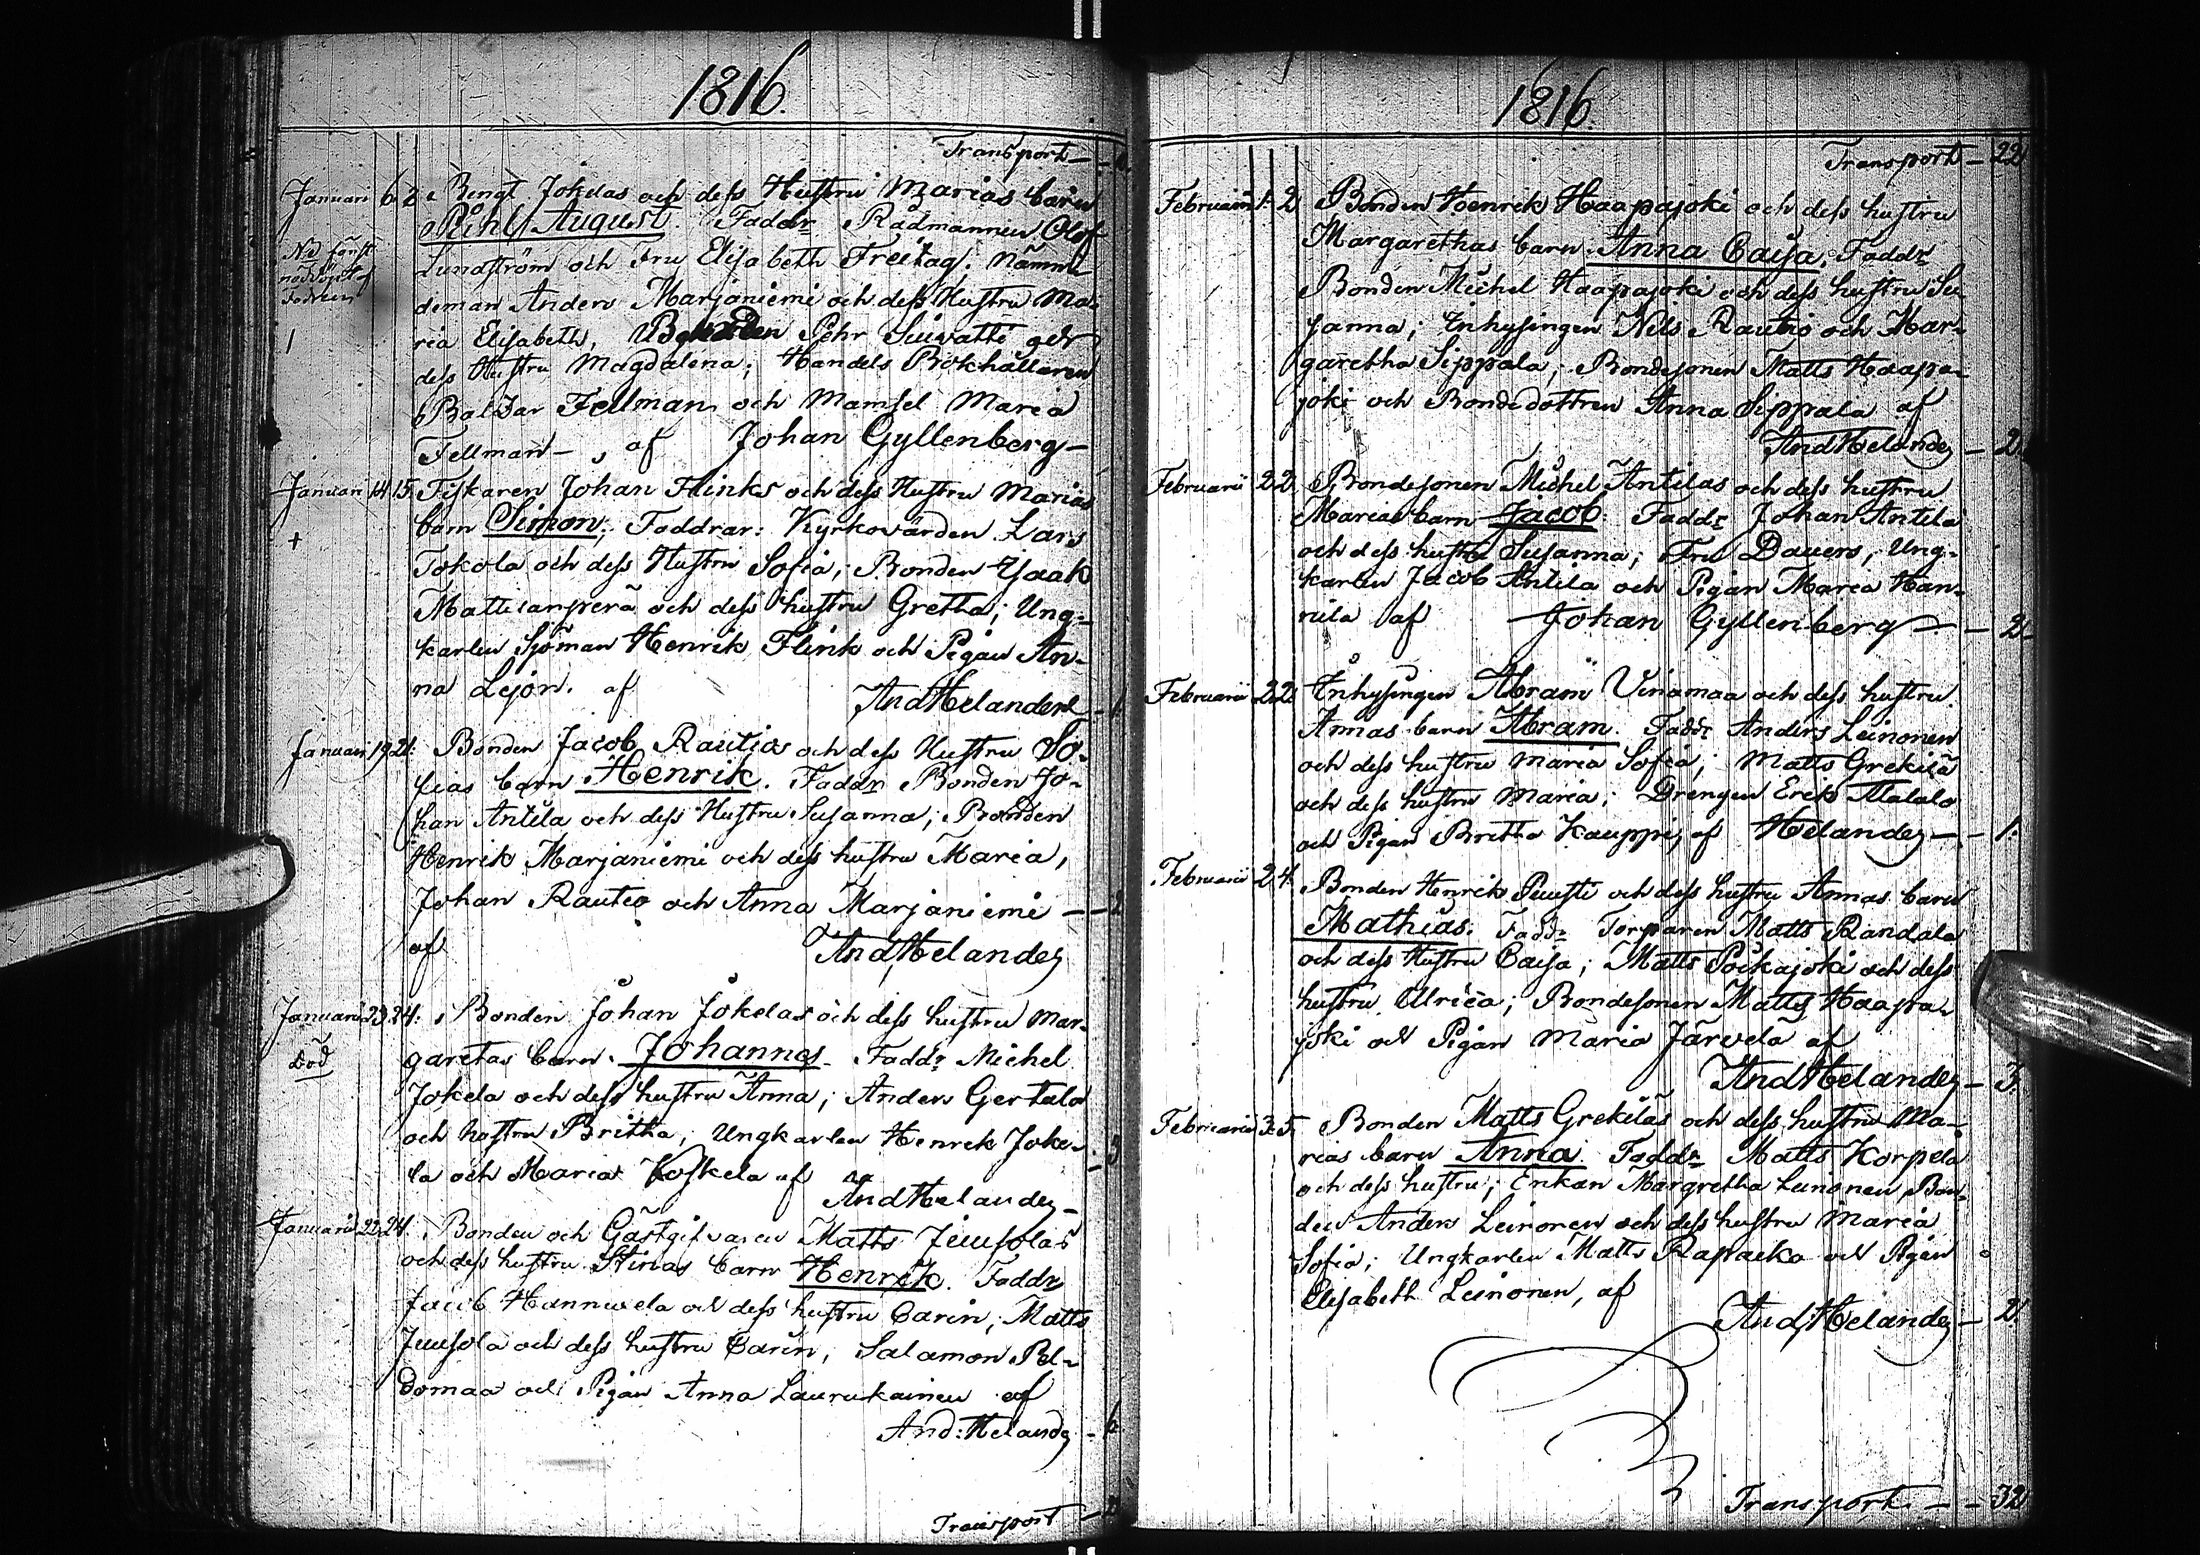 1816.
Transport -
Januari 6 2 Bengt Jokelas och dess Hustru Marias barn
Pehl August. Faddr Rådmannen Olof
Nöd först
nöddöpt af
Lundström och Fru Elisabeth Freitag; Nämn
deman Anders Marjaniemi och dess Hustru Ma-
ria Elisabeth, Pehr Siuvatti och
dess Hustru Magdalena; Handels Bokhållaren
Balzar Fellman och Mamsel Maria
Fellman -, af Johan Gyllenberg -
Januari 14 15. Fiskaren Johan Flinks och dess Hustru Marias
barn Simon; Faddrar: Kyrkovärden Lars
+
Tokola och dess Hustru Sofia; Bonden Isaak
Matticanperä och dess hustru Gretha; Ung-
karlen Sjöman Henrik Flink och Pigan An-
na Lejon. af
And Helander - 1.
Januari 19 21. Bonden Jacob Rautios och dess Hustru So-
fias barn Henrik. Faddr Bonden Jo-
han Antila och dess Hustru Susanna; Bonden
Henrik Marjaniemi och dess hustru Maria,
Johan Rautio och Anna Marjaniemi - - 2
af And Helander
Januari 23 24. Bonden Johan Jokelas och dess hustru Mar-
död
garetas barn Johannes. Faddr Michel
Jokela och dess hustru Anna; Anders Gertala
och hustru Britha; Ungkarlen Henrik Joke- - 3
la och Maria Koskela af
And Helander -
Januari 22 24. Bonden och Gästgifvaren Matts Juusolas
och dess hustru Stinas barn Henrik. Faddr
Jacob Hannuela och dess hustru Carin; Matts
Juusola och dess hustru Carin; Salamon Pel-
domaa och Pigan Anna Laurukainen af
And: Helander - 6
Transport -
1816
Transport - 22
Februarii 1. 2 Bonden Henrik Haapajoki och dess hustru
Margarethas barn Anna Caisa; Faddr
Bonden Michel Haapajoki och dess hustru Su-
sanna; Inhysingen Nils Rautio och Mar-
garetha Sippala; Bondesonen Matts Haapa-
joki och Bondedottren Anna Sippala af
And Helander - 2.
Februarii 2 2. Bondesonen Michel Antilas och dess hustru
Marias barn Jacob. Faddr Johan Antila
och dess hustru Susanna; Fru Dauers; Ung-
karlen Jacob Antila och Pigan Maria Han-
nila af Johan Gyllenberg - - 2.
Februarii 2 2. Inhysingen Abram Viinamaa och dess hustru
Annas barn Abram. Faddr Anders Leinonen
och dess hustru Maria Sofia; Matts Grekilä
och dess hustru Maria; Drengen Erik Alatalo
och Pigan Britha Kauppi, af Helander - - 1.
Februarii 2 4. Bonden Henrik Puusti och dess hustru Annas barn
Mathias. Faddr Torparen Matts Randala
och dess Hustru Caisa; Matts Poikajoki och dess
hustru Ulrica; Bondesonen Matts Haapa-
joki och Pigan Maria Järvelä af
And Helander - 3.
Februarii 3. 5. Bonden Matts Grekiläs och dess hustru Ma-
rias barn Anna. Faddr Matts Korpela
och dess hustru; Enkan Margretha Lunonen Bon-
den Anders Leinonen och dess hustru Maria
Sofia; Ungkarlen Matts Rapaeko och Pigan
Elisabeth Leinonen, af
And Helander - 2.
Transport - - 32